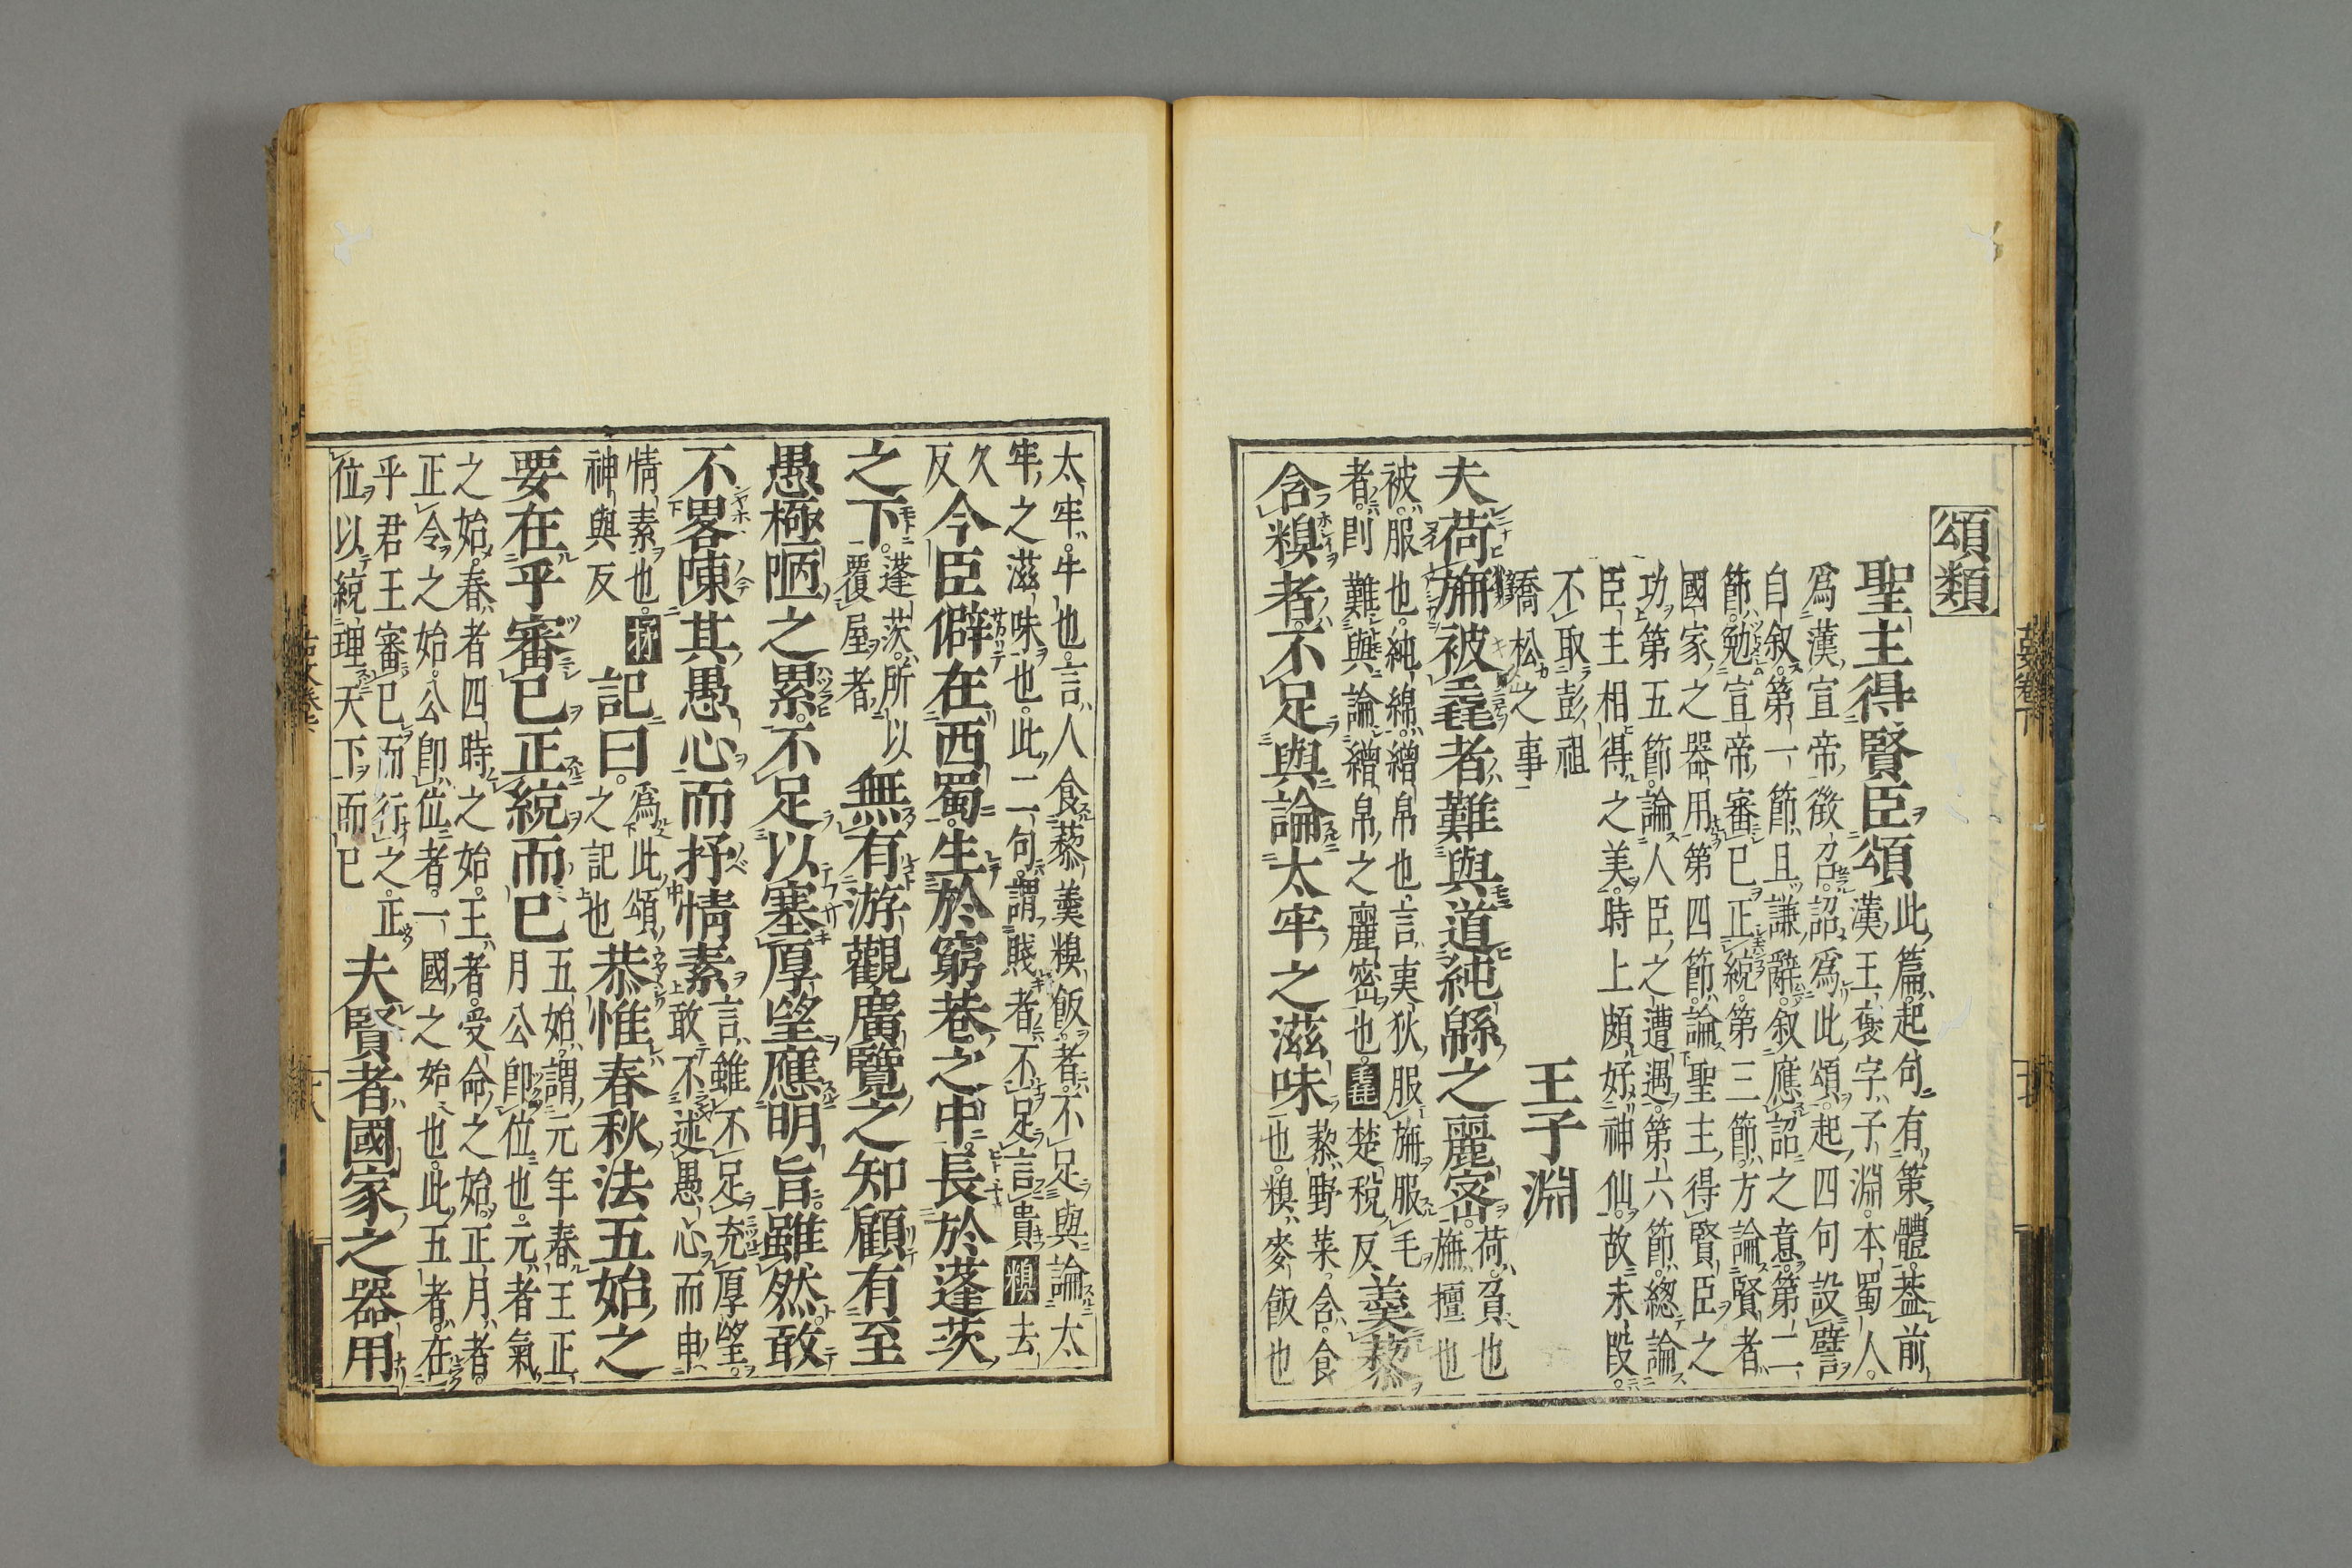 頌類
聖主得賢臣頌 此篇起句有策體葢前
漢王褒字子淵本蜀人
爲漢宣帝徵召詔爲此頌起四句設譬
自叙第一節且謙辭叙應詔之意第二
節勉宣帝審已正統第三節方論賢者
國家之器用第四節論聖主得賢臣之
功第五節論人臣之遭遇第六節緫論
臣主相得之美時上頗好神仙故末段
不取彭祖
僑松之事
王子淵
夫荷旃被毳者難與道純緜之麗密 荷負也
旃擅也
被服也純綿繒帛也言夷狄服旃服毛
者則難與論繒帛之麗密也毳楚稅反
羹藜
藜野菜含食
含糗者不足與論太牢之滋味 也糗麥飯也
太牢牛也言人食藜羹糗飯者不足與論太
牢之滋味也此二句謂賤者不足言貴糗去
久
反
今臣僻在西蜀生於窮巷之中長於蓬茨
之下 蓬茨所以
覆屋者
無有游觀廣覽之知顧有至
愚極陋之累不足以塞厚望應明旨雖然敢
不畧陳其愚心而抒情素 言雖不足充厚望
敢不述愚心而申
情素也抒
神與反
記曰 爲此頌
之記也
恭惟春秋法五始之
要在乎審已正統而已 五始謂元年春王正
月公卽位也元者氣
之始春者四時之始王者受命之始正月者
正令之始公卽位者一國之始也此五者在
乎君王審已而行之正
位以統理天下而已
夫賢者國家之器用
古文卷七
十八